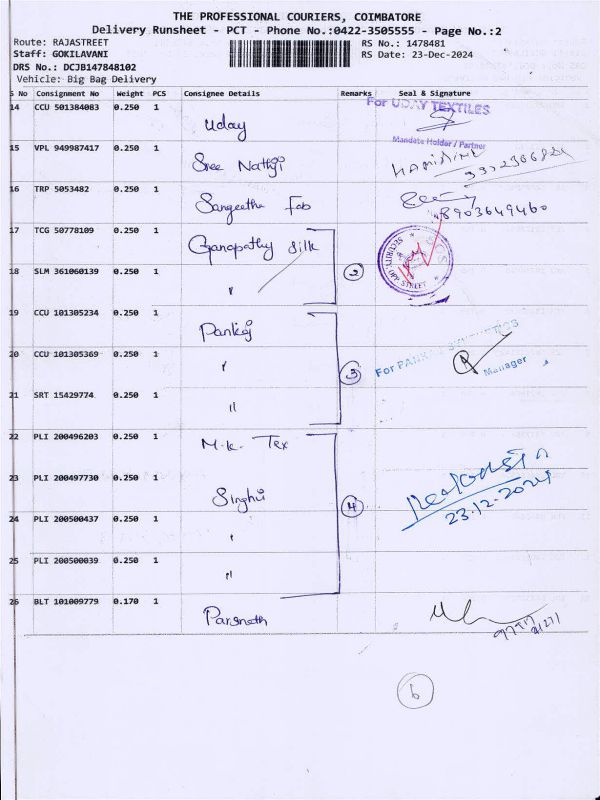 THE PROFESSIONAL COURIERS, COIMBATORE
Delivery Runsheet - PCT - Phone No.:0422-3505555 - Page No.:2
Route: RAJASTREET RS No.: 1478481
Staff: GOKILAVANI RS Date: 23-Dec-2024
DRS No.: DCJB147848102
Vehicle: Big Bag Delivery
S No Consignment No Weight PCS Consignee Details Remarks Seal & Signature
14 CCU 501384083 0.250 1 Uday For UDAY TEXTILES
Mandate Holder / Partner
15 VPL 949987417 0.250 1 Sree Nathji
16 TRP 5053482 0.250 1 Sangeetha Fab
8903649460
17 TCG 50778109 0.250 1 Ganapathy Silk
18 SLM 361060139 0.250 1 " 2
SECURITY OPP. STREET
19 CCU 101305234 0.250 1 Pankaj
20 CCU 101305369 0.250 1 " 3 For
Manager
21 SRT 15429774 0.250 1 "
22 PLI 200496203 0.250 1 M.K. Tex
23 PLI 200497730 0.250 1 Singhvi 4
23.12.2024
24 PLI 200500437 0.250 1 "
25 PLI 200500039 0.250 1 "
26 BLT 101009779 0.170 1 Parsnath
6